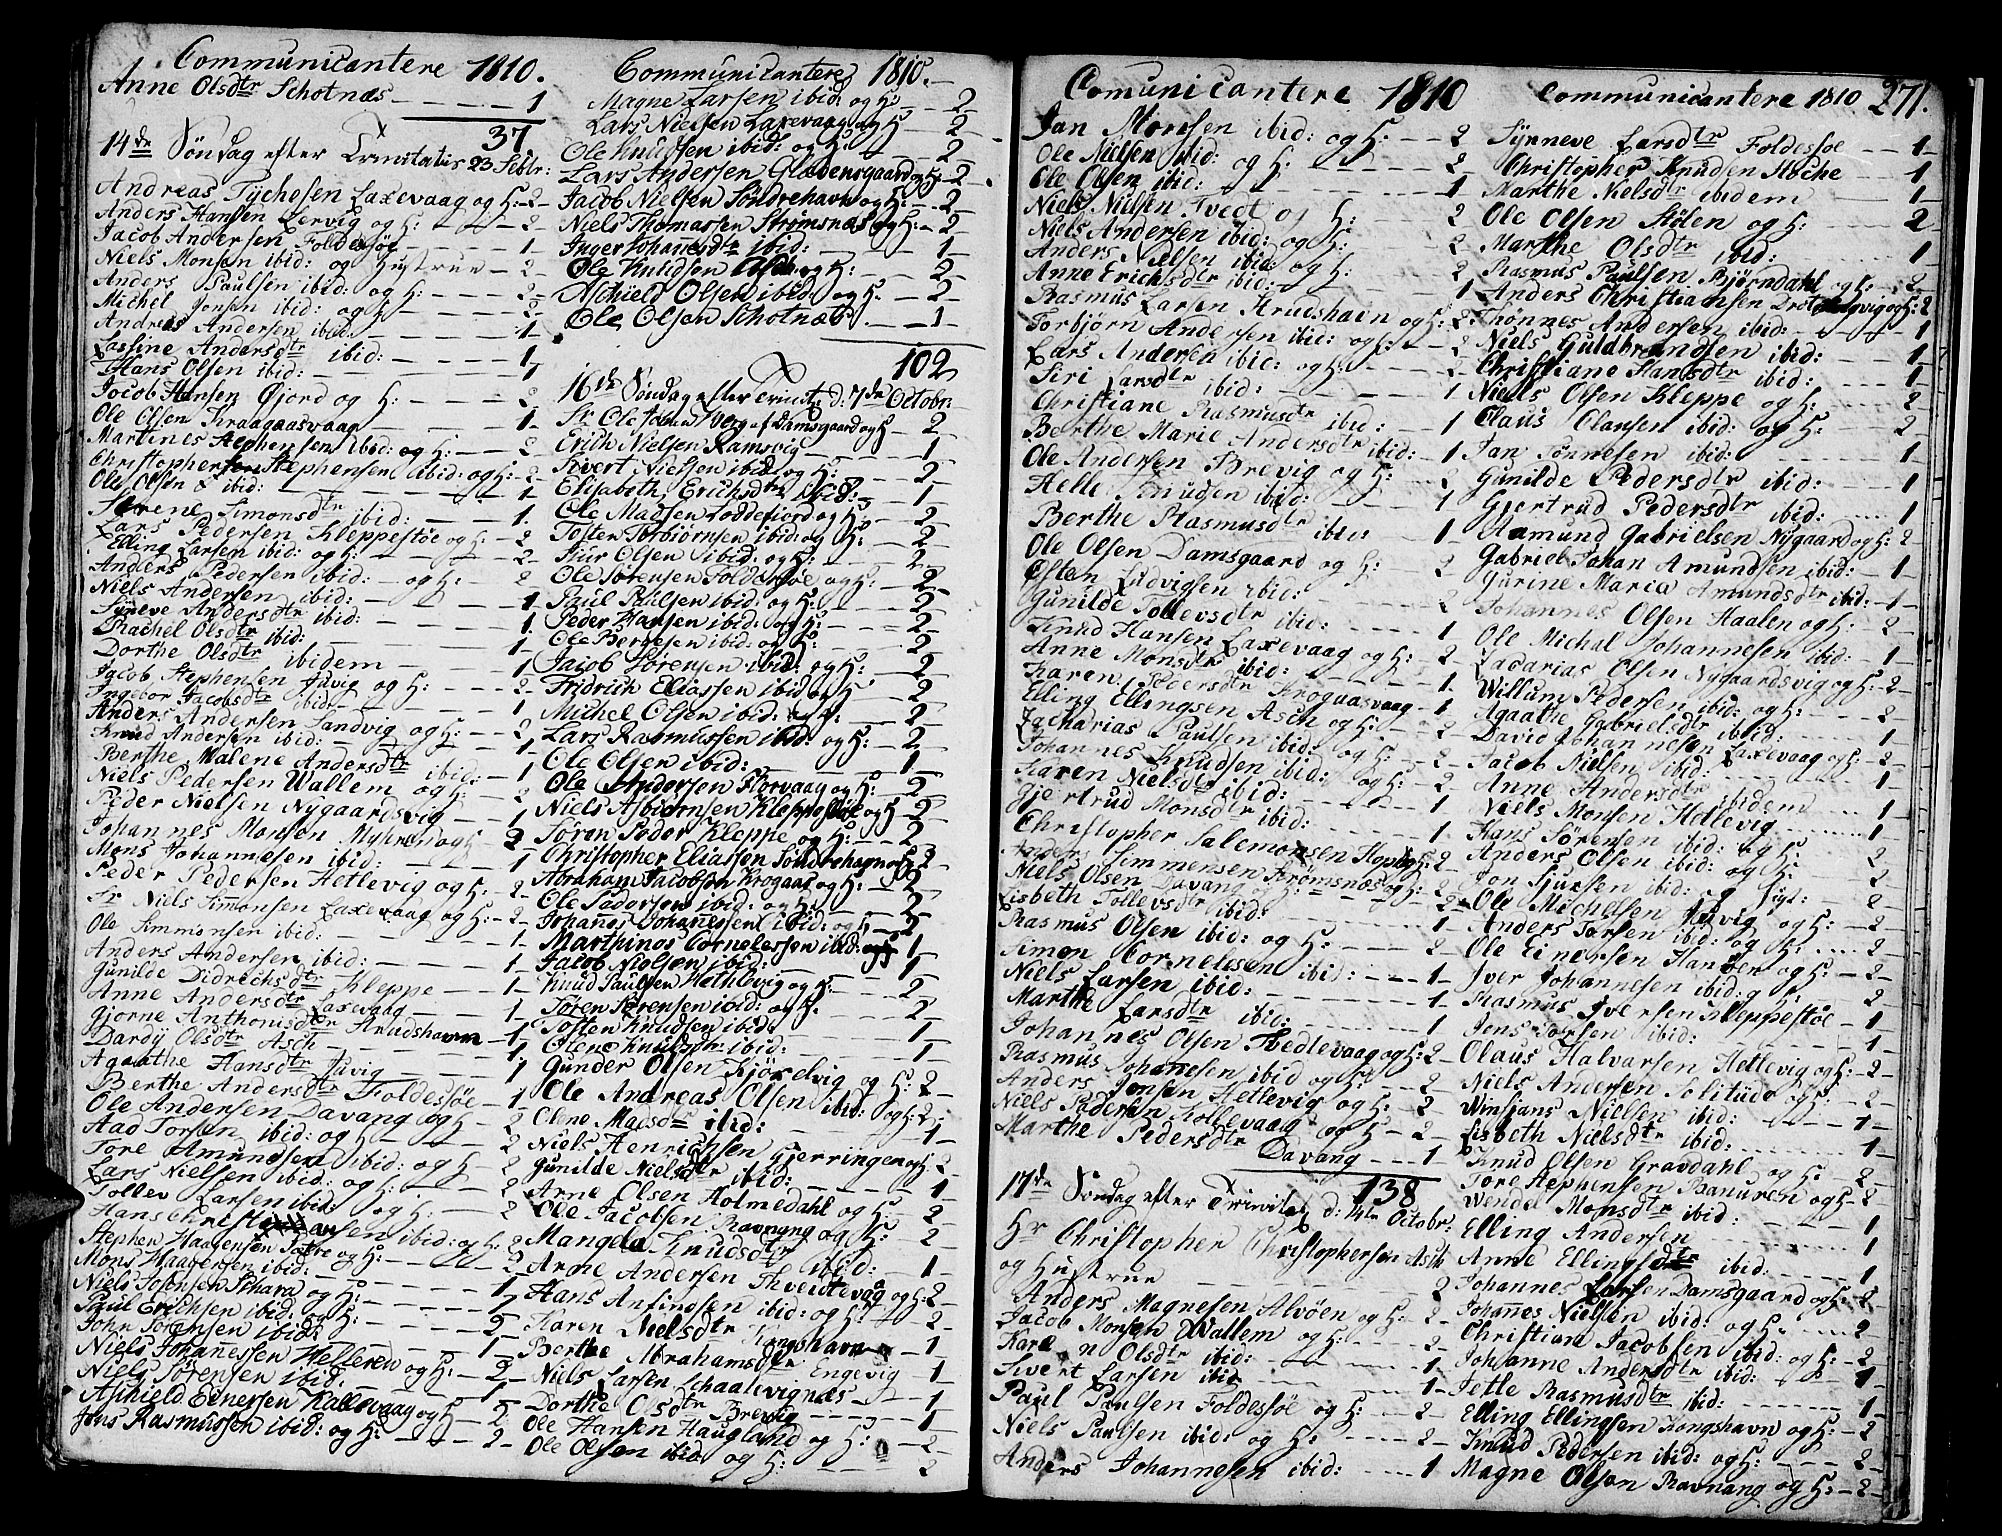 Communicantere 1810.
Anne Olsdtr Schotnæs - - - - 1
37.
14de Søndag efter Trinitatis 23 Septbr:
Andreas Tychesen Laxevaag og H: - 2
Anders Hansen Lervig og H: - - 2
Jacob Andersen Foldesøe - - - 1
Niels Monsen ibid: og Hustrue - 2
Anders Paulsen ibid: og H: - - 2
Michel Jonsen ibid: og H - - 2
Andreas Andersen ibid: - - - 1
Lassine Andersdtr ibid: - - - 1
Hans Olsen ibid: - - - 1
Jacob Hansen Gjord og H: - - 2
Ole Olsen Kraagaasvaag - - 1
Martines Stephensen ibid: og H: - - 2
Christophersen Stephensen ibid: og H: - 2
Ole Olsen ibid: - - - 1
Serene Simonsdtr ibid: - - 1
Lars Pedersen Kleppestøe - - 2
Elling Larsen ibid: og H: - - 2
Anders Pedersen ibid: - og H: - 2
Niels Andersen ibid: - - - 1
Syneve Andersdtr ibid: - - 1
Rachel Olsdtr ibid: - - - 1
Dorthe Olsdtr ibidem - - - 1
Jacob Stephensen Juvig og H: - - 2
Ingebor Jacobsdtr ibid: - - - 1
Anders Andersen Sandvig og H: - 2
Knud Andersen ibid: - - - 1
Berthe Malene Andersdtr ibid: - 1
Niels Pedersen Wallem og H: - 2
Peder Nielsen Nygaardsvig - - 1
Johannes Monsen Myhren og H: 2
Mons Johannesen ibid: - - - 1
Peder Pedersen Hetlevig og H: - 2
Sr Niels Simonsen Laxevaag og H: - 2
Ole Simmonsen ibid: - - - 1
Anders Andersen ibid: - - - 1
Gunilde Didrechsdtr Kleppe - - 1
Anne Andersdtr Laxevaag - - 1
Gjorne Anthonisdtr Knudshavn - 1
Dardy Olsdtr Asch - - - 1
Agaathe Hansdtr Juvig - - - 1
Berthe Andersdtr Foldesøe - 1
Ole Andersen Davang og H - 2
Aad Torsen ibid: og H: - - 2
Tore Amundsen ibid: og H - 2
Lars Nielsen ibid: og H: - - 2
Tollev Larsen ibid: og H: - 2
Hans Christiansen ibid: og H: - 2
Stephen Haagensen Totre og H: - - 2
Mons Haagensen ibid: - - - 1
Niels Torensen Skara og H: - - 2
Paul Erichsen ibid: og H: - - 2
John Sørensen ibid: - - - 1
Niels Johanessen Welleren og H: - 2
Niels Sørensen ibid: - - - 1
Aschield Einersen Kallevaag og H: - 2
Jens Rasmussen ibid: og H: - - 2

Communicantere 1810.
Magne Larsen ibid: og H: - - 2
Lars Nielsen Laxevaag og H - - 2
Ole Knudsen ibid: og H: - - 2
Lars Andersen Gladensgaard og H: - 2
Jacob Nielsen Søndrehavn og H: - 2
Niels Thomassen Strømsnæs og H: - 2
Inger Johannesdtr ibid: - - 1
Ole Knudsen Asch og H: - - 2
Aschield Olsen ibid: og H: - - 2
Ole Olsen Schotnæs - - 1
102
16de Søndag efter Trinit: d: 7de Octobr:
Sr Ole Johan Werg af Damsgaard og H - 2
Erich Nielsen Ramsvig - - - 1
Sivert Nielsen ibid: og H: - - 2
Elisabeth Erichsdtr ibid: - - 1
Ole Madsen Loddefiord og H: - - 2
Tosten Torbiørnsen ibid: og H: - 2
Siur Olsen ibid: og H: - - 2
Ole Sørensen Foldesøe og H: - 2
Paul Paulsen ibid: og H: - - 2
Peder Hansen ibid: og H: - - 2
Ole Berresen ibid: og H: - - 2
Jacob Sørensen ibid: og H: - - 2
Fridrich Eliassen ibid og H - 2
Michel Olsen ibid: og H: - - 2
Lars Rasmussen ibid: og H: - 2
Ole Olsen ibid: - - - 1
Ole Andersen Florvaag og H: - 2
Niels Asbiørnsen Kleppestøe og H: 2
Søren Peder Kleppe og H: - - 2
Christopher Eliassen Søndrehagn og H: 2
Abraham Jacobsen Krogaas og H: - 2
Ole Pedersen ibid: og H: - - 2
Johannes Johannessen ibid: og H: - 2
Marthinos Cornelessen ibid: - 1
Jacob Nielsen ibid: - - - 1
Knud Paulsen Hethlevig og H: - 2
Søren Sørensen ibid: og H: - 2
Tosten Knudsen ibid: - - - 1
Olene Knudsdtr ibid: - - - 1
Gunder Olsen Kjørelvig og H: - 2
Ole Andreas Olsen ibid: og H: 2
Olene Madsdtr ibid: - - - 1
Niels Henrichsen Gjerringen og H: - 2
Gunilde Nielsdtr ibid: - - 1
Arne Olsen Holmedahl og H: - - 2
Ole Jacobsen Ravnang og H: - 2
Mangela Knudsdtr ibid: - - 1
Arne Andersen Thveitevog og H: - 2
Hans Anfindsen ibid: og H: - - 2
Karen Nielsdtr Kongshavn - 1
Berthe Abrahamsdtr Engevig - 1
Niels Larsen Schaalevignæs - - 1
Dorthe Olsdtr Brevig - - - 1
Ole Hansen Haugland og H: - - 2
Ole Olsen ibid: og H: - - - 2

Comunicantere 1810
Jan Monsen ibid: og H: - - 2
Ole Nielsen ibid: og H: - - - 2
Ole Olsen ibid: - - - 1
Niels Nielsen Tvedt og H: - - 2
Niels Andersen ibid: og H: - - 2
Anders Nielsen ibid: og H: - - 2
Anne Erichsdtr ibid: - - - 1
Rasmus Larsen Knudshavn og H: - 2
Torbjørn Andersen ibid: og H: - - 2
Lars Andersen ibid: og H: - - 2
Siri Larsdtr ibid: - - - 1
Christiane Rasmusdtr ibid: - 1
Berthe Marie Andersdtr ibid: 1
Ole Andersen Brevig og H: - - 2
Helle Knudsen ibid: - - - 1
Berthe Rasmusdtr ibid: - - 1
Ole Olsen Damsgaard og H: - - 2
Osten Ludvigsen ibid: - - - 2
Gunilde Tollevsdtr ibid: - - 1
Knud Hansen Laxevaag og H: - 2
Anne Monsdtr ibid: - - - 1
Karen Pedersdtr Krogaasvaag - 1
Elling Ellingsen Asch og H: - - 2
Zacharias Paulsen ibid: og H: - 2
Johannes Knudsen ibid: og H: - 2
Karen Nielsdtr ibid: - - - 1
Gjertrud Monsdtr ibid: - - - 1
Christopher Salemonsen Hop og H: 2
Anders Simmensen Strømsnæs og H: - 2
Niels Olsen Davang og H: - - - 2
Lisbeth Tollevsdtr ibid: - - -
Rasmus Olsen ibid: og H: - - 2
Simon Cornelesen ibid: - - - 1
Niels Larsen ibid: - - - 1
Marthe Larsdtr ibid: - - - 1
Johannes Olsen Hedlevaag og H: - 2
Rasmus Johanesen ibid og H: - - 2
Anders Jonsen Hetlevig og H: - - 2
Niels Pedersen Kollevaag og H: - 2
Marthe Pedersdtr Davang - - - 1
138
17de Søndag efter Trinitat: d: 14de Octobr:
Hr Christopher Christophersen Asch
og Hustrue - - - 2
Anders Magnesen Alvøen og H: - - 2
Jacob Monsen Wallem og H: - - 2
Karen Olsdtr ibid: - - - 1
Sivert Larsen ibid - - - 1
Paul Paulsen Foldesøe og H: - - 2
Niels Paulsen ibid: og H: - - - 2
Anders Johannesen ibid: - - - 1

Communicantere 1810 271.
Synneve Larsdtr Foldesøe - - 1
Christopher Knudsen Høche - - 1
Marthe Nielsdtr ibidem - - 1
Ole Olsen Stølen og H: - - 2
Marthe Olsdtr ibid: - - 1
Rasmus Paulsen Bjørndahl og H: - 2
Anders Christiansen Drotningvig og H: 2
Thønnes Andersen ibid: - - - 1
Niels Guldbrandsen ibid: - - 1
Christiane Hansdtr ibid: - - 1
Niels Olsen Kleppe og H: - - 2
Claus Clausen ibid: og H: - - 2
Jan Tønnesen ibid: - - - 1
Gunilde Pedersdtr ibid: - - 1
Gjertrud Pedersdtr ibid: - - 1
Aamund Gabrielsen Nygaard og H: 2
Gabriel Johan Amundsen ibid: - 1
Gurine Maria Amundsdtr ibid: - 1
Johannes Olsen Haalen og H: - 2
Ole Michal Johannesen ibid: - 1
Zacarias Olsen Nygaardsvig og H: - 2
Willum Pedersen ibid: og H: - - 2
Agaathe Gabrielsdtr ibid: - - 1
David Johannesen Laxevaag og H: - 2
Jacob Nielsen ibid: - - - 1
Anne Andersdtr ibidem - - 1
Niels Monsen Hetlevig - - - 1
Hans Sørensen ibid: og H: - - 2
Anders Olsen ibid: og H: - - 2
Jon Sjursen ibid: og Pige: - - 2
Ole Michelsen Juvig og H: - - 2
Anders Torsen ibid: og H: - - 2
Ole Einersen Hanøen og H: - - 2
Iver Johannesen ibid: og H: - - 2
Rasmus Iversen Kleppestøe - - 1
Jens Torsen ibid: - - - 1
Olaus Halvarsen Hetlevig og H: - 2
Niels Andersen Solitude og H: - 2
Winsjans Nielsen ibid: - - 1
Lisbeth Nielsdtr ibid: - - - 1
Knud Olsen Gravdahl og H: - 2
Tore Stephensen Banuren og H: - 2
Wendel Monsdtr ibid: - - - 1
Elling Andersen - - - 1
Anne Ellingsdtr ibid: - - - 1
Johannes Larsen Damsgaard og H: - 2
Johannes Nielsen ibid: og H: - - 2
Christian Jacobsen ibid: og H: - 2
Johanne Andersdtr ibid: - - 1
Jetle Rasmusdtr ibid: - - - 1
Elling Ellingsen Kongshavn og H: - 2
Knud Pedersen ibid: og H: - - 2
Magne Olsen Ravnang og H: - - 2